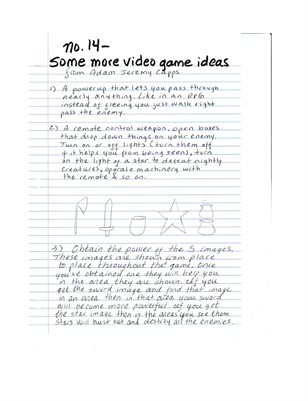 no. 14-
Some more video game ideas
from Adam Jeremy Capps
1) A powerup that lets you pass through
nearly anything. Like in an RPG
instead of freeing you just walk right
pass the enemy.
2.) A remote control weapon, open boxes
that drop down things on your enemy.
Turn on or off lights (turn them off
if it helps you from being seen), turn
on the light of a star to defeat nightly
creatures, operate machinery with
the remote & so on.
3.) Obtain the power of the 5 images.
These images are shown from place
to place throughout the game. Once
you've obtained one they will help you
in the area they are shown. If you
get the sword image and find that image
in an area then in that area your sword
will become more powerful. If you get
the star image then in the areas you see them
stars will bust out and destroy all the enemies.